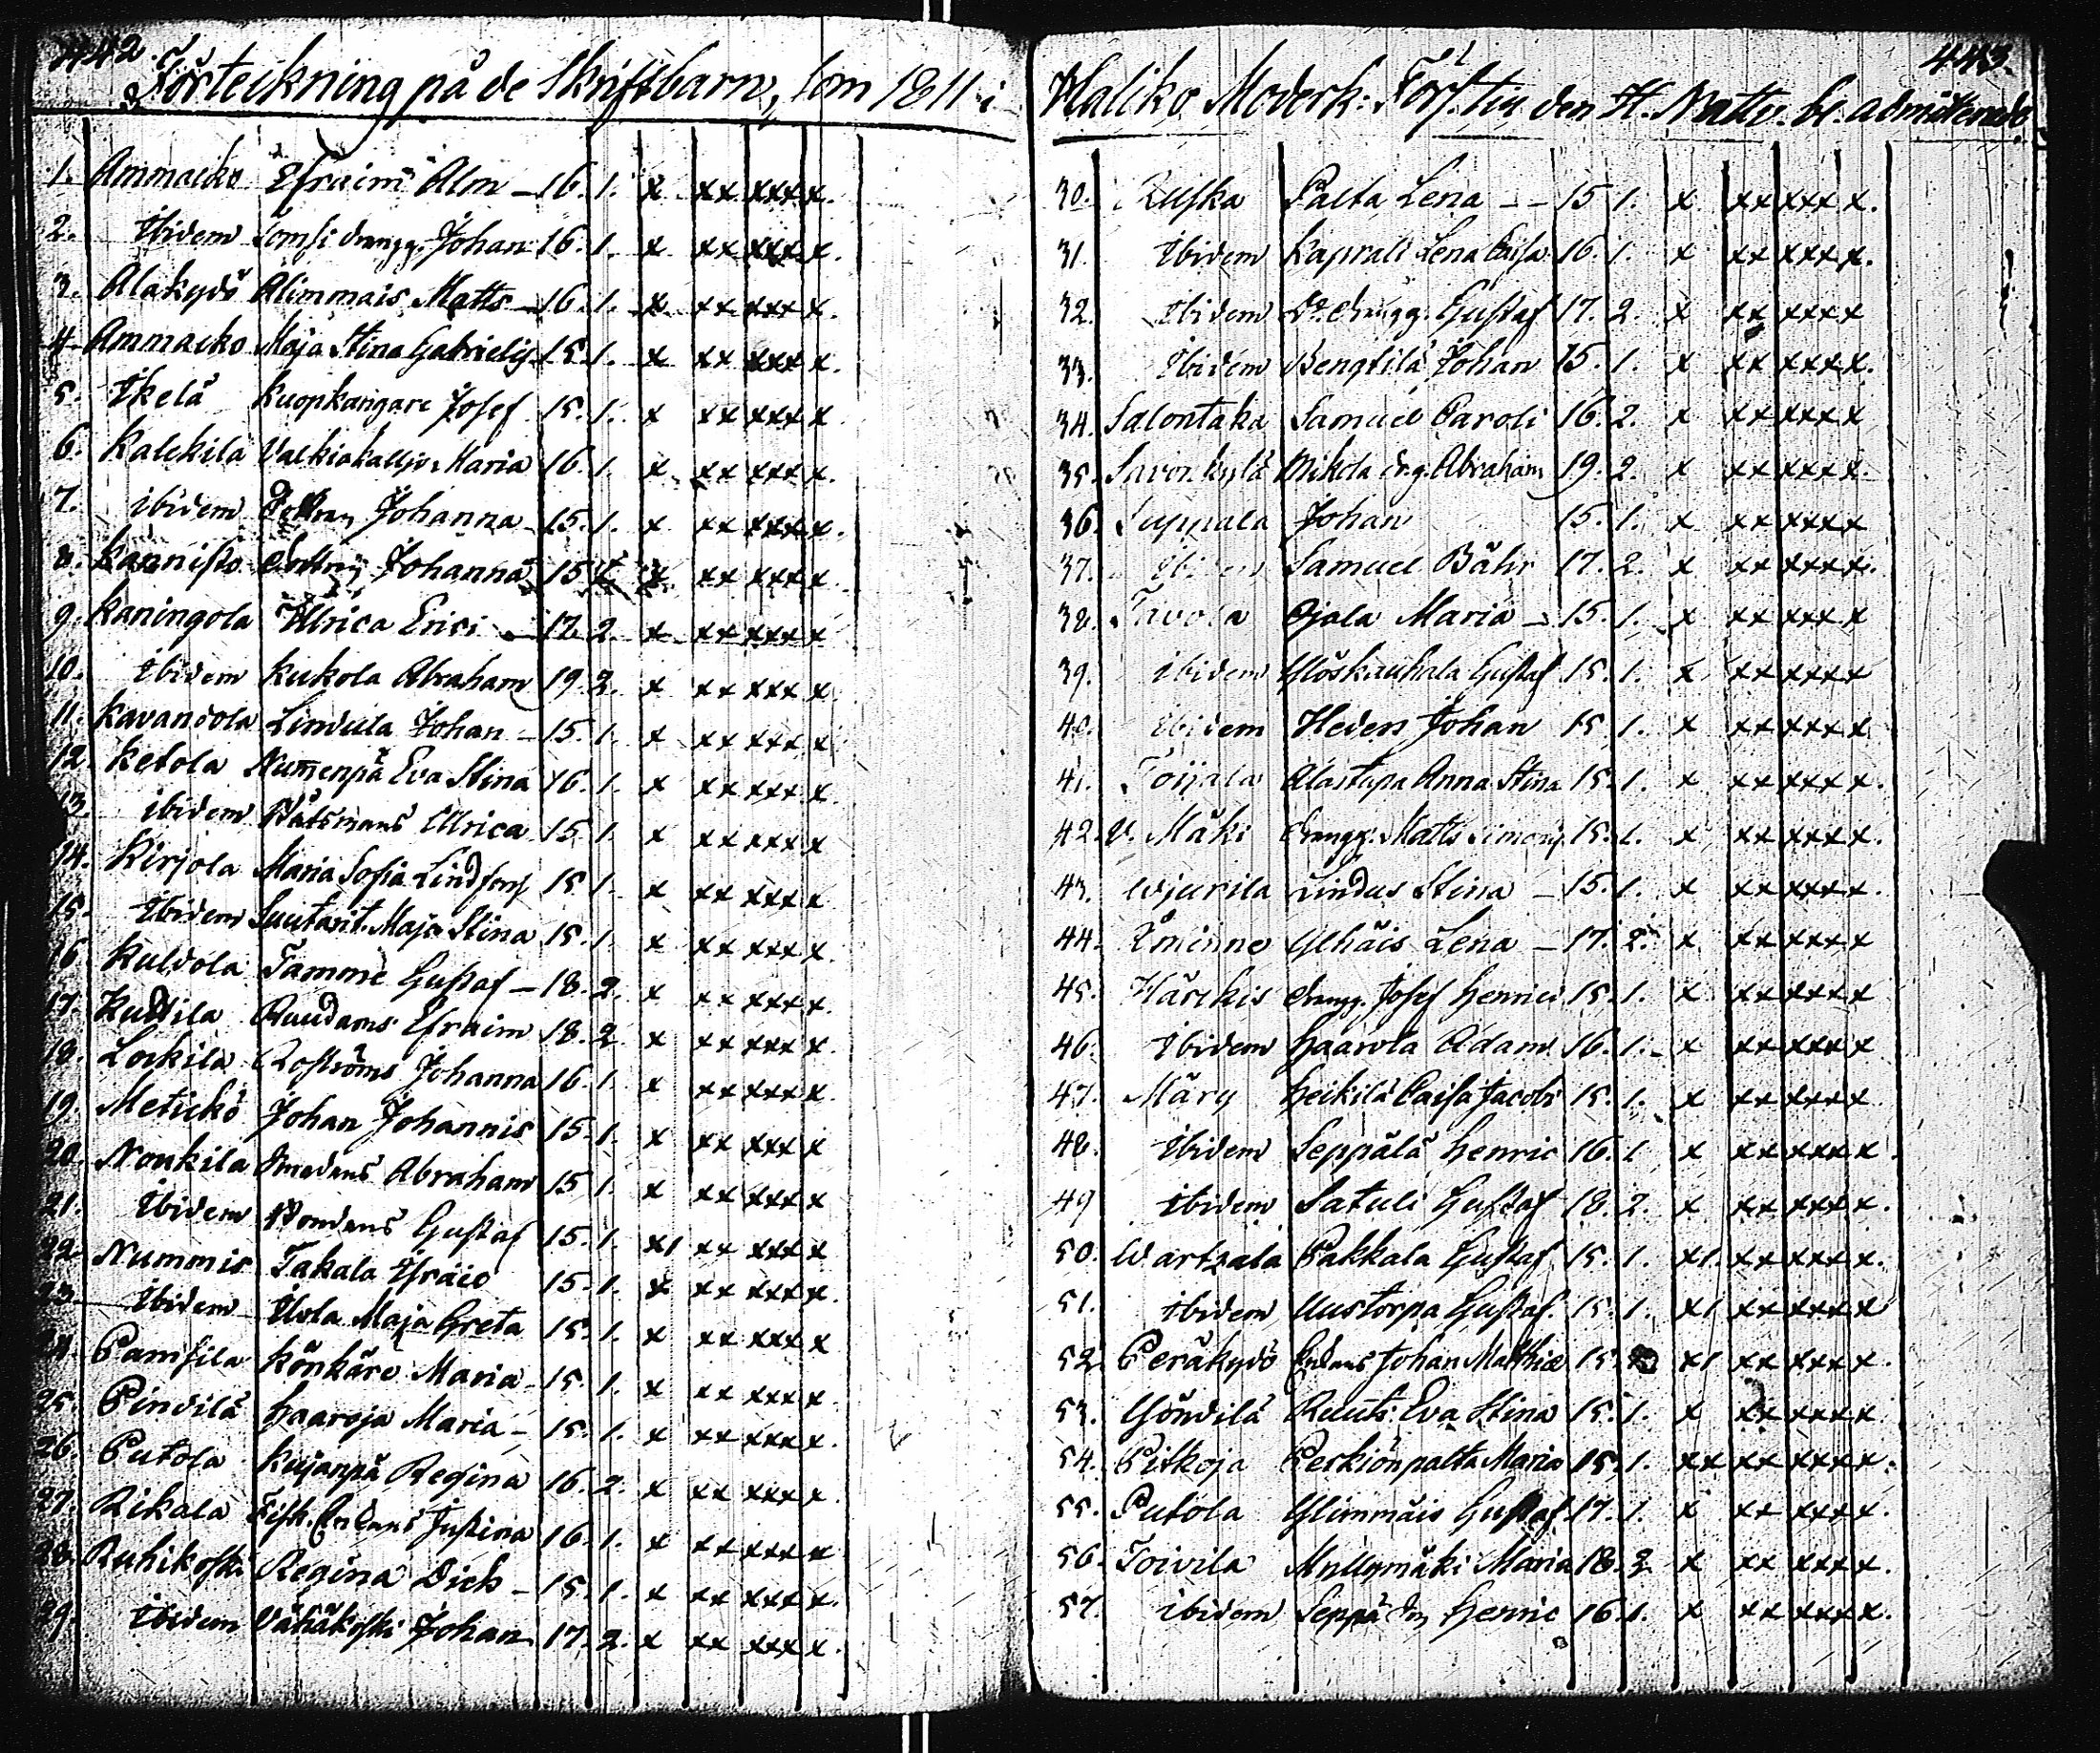 442.
Förteckning på de Skriftbarn, som 1811 i
1. Ammaiko Efraim Alm - 16. 1. x xx xxx x.
2. Ibidem Tomsi drengg. Johan 16. 1. x xx xxx x.
3. Alakydö Alimmais Matts - 16. 1. x xx xxx x.
4. Ammaiko Maja Stina Gabrielis 15. 1. x xx xxx x.
5. Ikelä Kuopkangare Josef 15. 1. x xx xxx x
6. Kalckila Valkiakalljo Maria 16. 1. x xx xxx x.
7. ibidem Johanna - 15. 1. x xx xxx x.
8. Kannisto Johanna 15 x xx xxx x.
9. Kaningola Ullrica Erici - 17. 2. x xx xxx x
10. Ibidem Kukola Abraham 19. 2. x xx xxx x.
11. Kavandola Lindula Johan - 15. 1. x xx xxx x.
12. Ketola Numenpä Eva Stina 16. 1. x xx xxx x.
13. ibidem Båtsmans Ullrica 15. 1. x xx xxx x
14. Kirjola Maria Sofia 15 1. x xx xxx x
15. Ibidem Suutarit. Maja Stina 15. 1. x xx xxx x.
16. Kuldola Tamme Gustaf - 18. 2. x xx xxx x.
17. Kuttila Ruudams Efraim 18. 2. x xx xxx x.
18. Lockila Roströms Johanna 16. 1. x xx xxx x.
19. Metickö Johan Johannis 15. 1. x xx xxx x
20. Nonkila Smedens Abraham 15 1. x xx xxx x
21. Ibidem Bondens Gustaf 15. 1. x1 xx xxx x
22. Nummis Takala Israic 15. 1. x xx xxx x.
23. Ibidem Maja Greta 15. 1. x xx xxx x
24. Pamfila Könkäre Maria - 15. 1. x xx xxx x.
25. Pindilä Haaroja Maria - 15. 1. x xx xxx x.
26. Putola Kujanpä Regina 16. 2. x xx xxx x.
27. Rikala Fisk. Justina 16. 1. x xx xxx x
28. Ruhikoski Regina Dick - 15. 1. x xx xxx x.
29. Ibidem Vähäkoski Johan 17. 2. x xx xxx x.
443.
Haliko Moderk: Förs. till den H. Nattv. bl. admitterade.
30. Ruska Palta Lena - - 15 1. x xx xxx x.
31. Ibidem Kaprali Lena Caisa 16. 1. x xx xxx x.
32. Ibidem Do. drengg. Gustaf 17. 2. x xx xxx x
33. Ibidem Bengtilä Johan 15. 1. x xx xxx x.
34. Salontaka Samuel Caroli 16. 2. x xx xxx x
35. Savonkylä Mikola drg. Abraham 19. 2. x xx xxx x.
36. Suppala Johan 15. 1. x xx xxx x
37. Ibidem Samuel Bähr 17. 2. x xx xxx x.
38. Tavola Ojala Maria - 15. 1. x xx xxx x
39. ibidem Ylöskauhala Gustaf 15. 1. x xx xxx x
40. Ibidem Heders Johan 15 1. x xx xxx x
41. Toijala Alastupa Anna Stina 15. 1. x xx xxx x.
42. V. Mäki drengg. Matts Simonis 15. 1. x xx xxx x.
43. Wjurila Lindus Stina - 15. 1. x xx xxx x.
44. Åminne Ylhäis Lena - 17. 2. x xx xxx x
45. Härckis drengg. Josef Henrici 15. 1. x xx xxx x
46. Ibidem Haarola Adam 16. 1. x xx xxx x
47. Märy Heikilä Caisa Jacobi 15. 1. x xx xxx x
48. Ibidem Seppälä Henric 16. 1 x xx xxx x.
49 ibidem Satuli Gustaf 18. 2. x xx xxx x.
50. Wartzala Pakkala Gustaf 15. 1. x1. xx xxx x.
51. ibidem Uustorpa Gustaf. 15. 1. x1 xx xxx x
52. Peräkydö Johan Matthiæ 15. x1 xx xxx x.
53. Yöndilä Ruuts. Eva Stina 15. 1. x xx xxx x.
54. Pitkoja Peskiönpalta Maria 15. 1. xx xx xxx x.
55. Putola Ylimmäis Gustaf 17. 1. x xx xxx x.
56. Toivila Myllymäki Maria 18. 2 x xx xxx x.
57. ibidem Seppä Henric 16. 1. x xx xxx x.